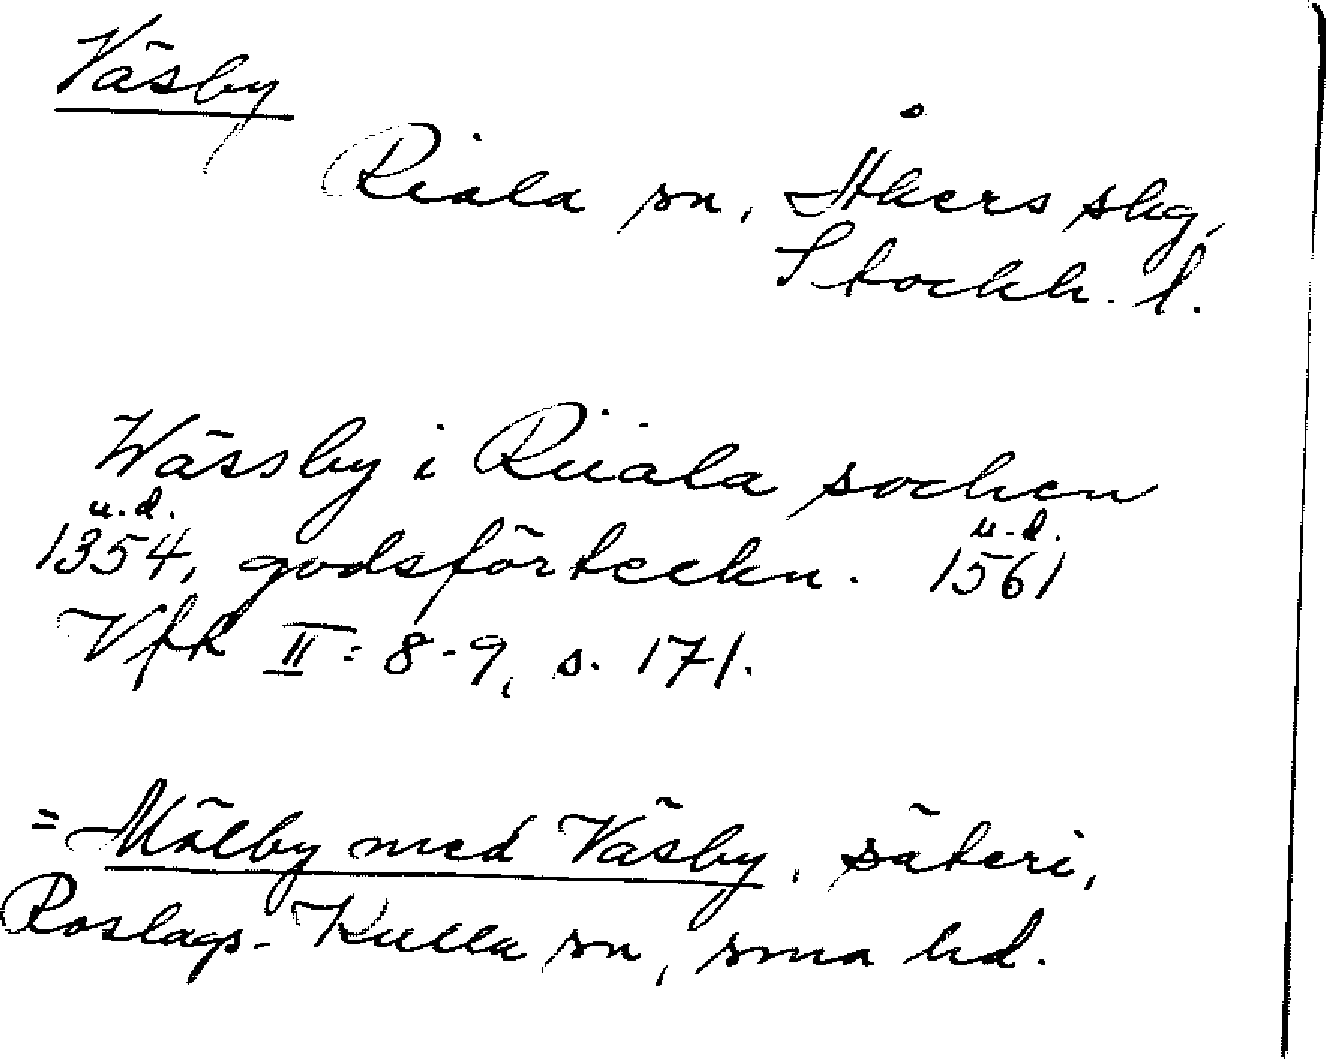 Väsby
Riala sn, Åkers skg,
Stockh. l.
Wässby i Riiala sochen
u.d. u.d.
1354, godsförteckn. 1561
VfR II: 8-9, s. 171.
= Mälby med Väsby, säteri,
Roslags-Kulla sn, sma hd.